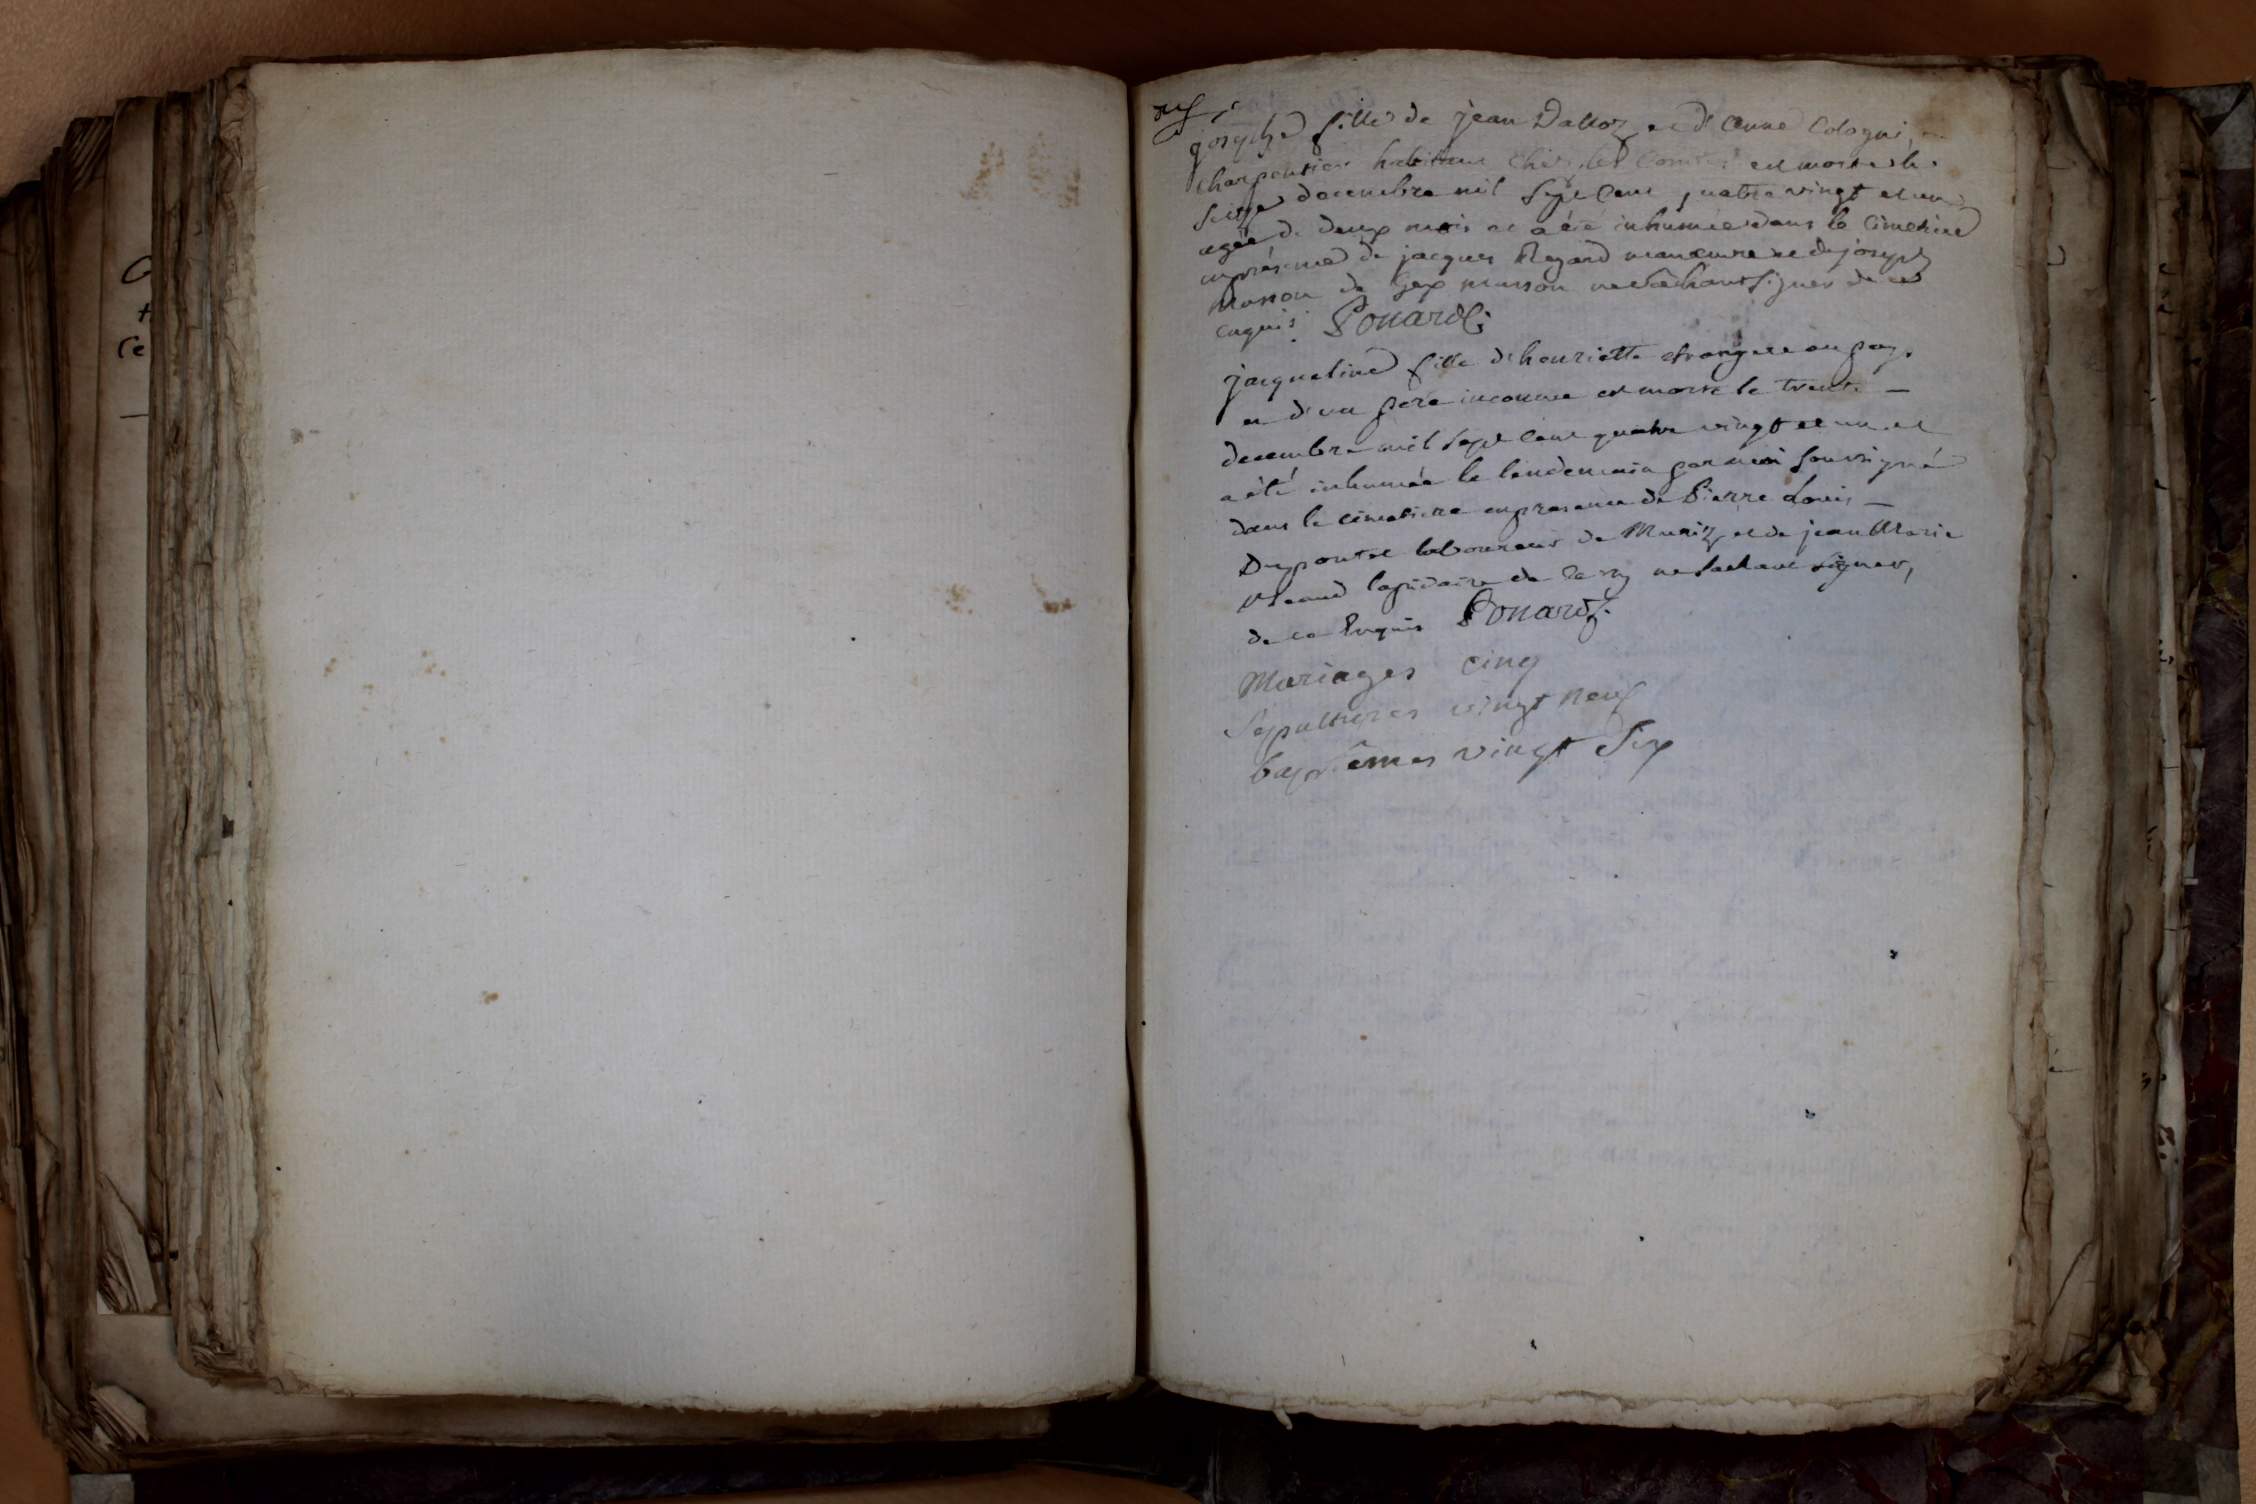 josephe fille de jean Dalloz et d'anne Cologni,
charpentier habitant chés les est morte le
seize decembre mil sept cent quatre vingt et un
agée de deux mois et a été inhumée dans le cimetiere
en présence de jacques Regard manœuvre et de joseph
Masson de Gex masson ne sachant signer de ce
enquis. Ponard
jacqueline fille d'henriette etrangere au pays
et d'un pere inconnu est morte le trente —
decembre mil sept cent quatre vingt et un et
a été inhumée le lendemain par moi soussigné
dans le cimetiere en presence de Pierre Louis —
Duponthet laboureur de et de jean Marie
lapidaire de ne sachant signer,
de ce Enquis Ponard.
Mariages cinq
Sepultures vingt neuf
baptêmes vingt six